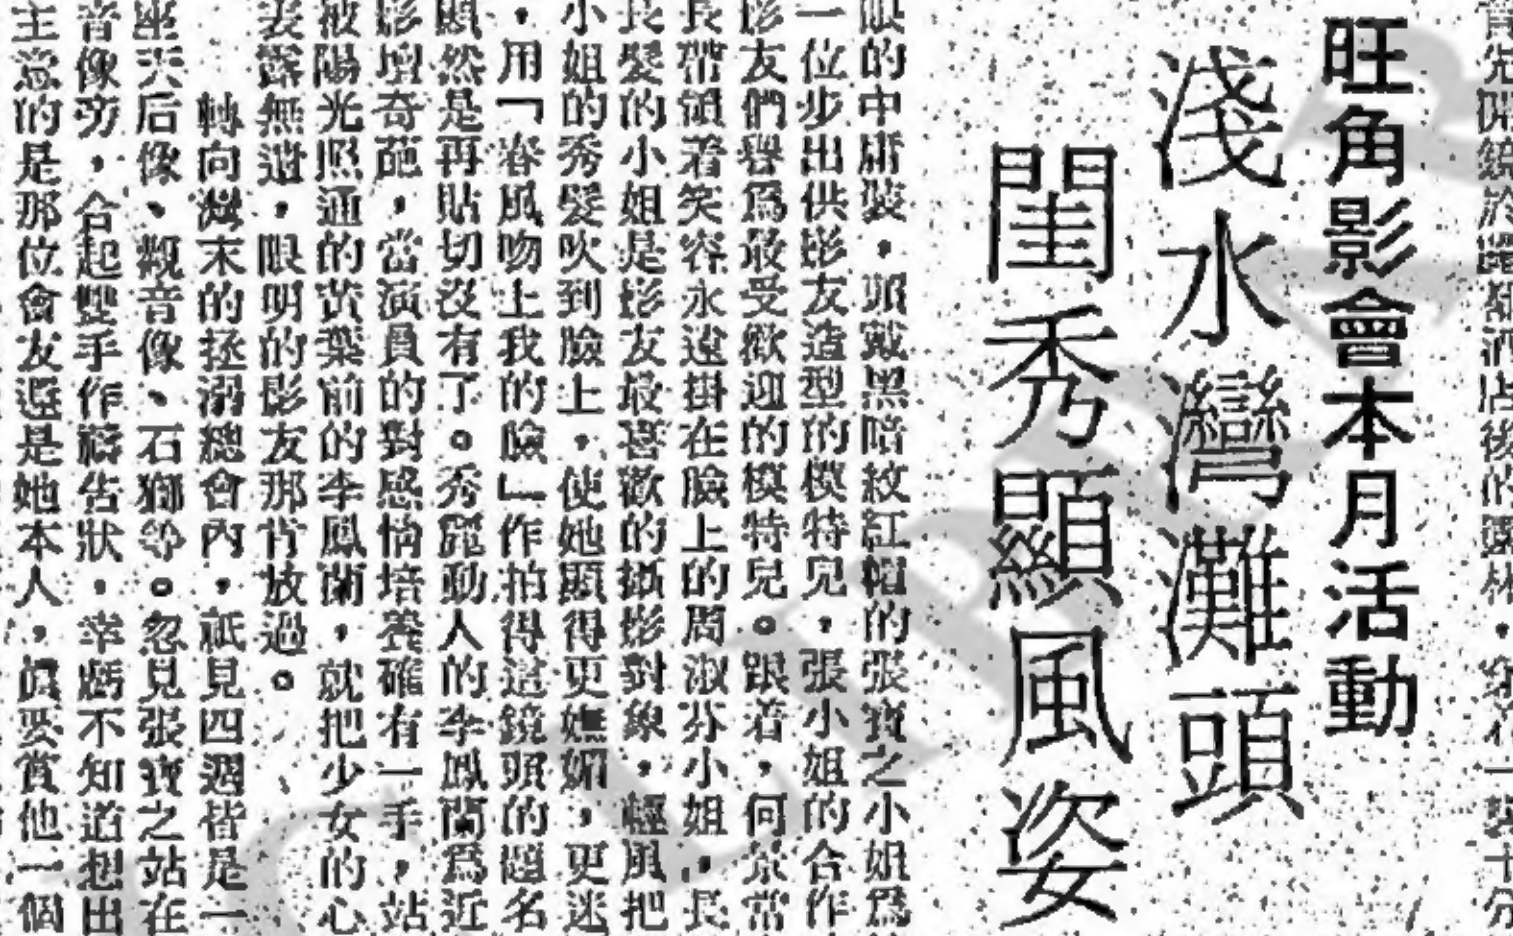 旺角影會本月活動
淺水灣灘頭
閨秀顯風姿
眼的中庸裝，頭戴黑暗紋紅帽的張寶之小姐爲
一位步出供影友造型的模特兒，張小姐的合作
影友們譽爲最受歡迎的模特兒。跟着，何景常
長帶領着笑容永遠掛在臉上的周淑芬小姐，長
長髮的小姐是影友最喜歡的攝影對象，輕風把
小姐的秀髮吹到臉上，使她顯得更嫵媚，更迷
，用「春風吻上我的臉」作拍得這鏡頭的題名
顯然是再貼切沒有了。秀麗動人的李鳳蘭爲近
影壇奇葩，當演員的對感情培養確有一手，站
被陽光照通的黃葉前的李鳳蘭，就把少女的心
表露無遺，眼明的影友那肯放過。
轉向灣末的拯溺總會內，祇見四週皆是一
座天后像、觀音像、石獅等。忽見張寶之站在
音像旁，合起雙手作禱告狀，幸虧不知道想出
主意的是那位會友還是她本人，眞要賞他一個